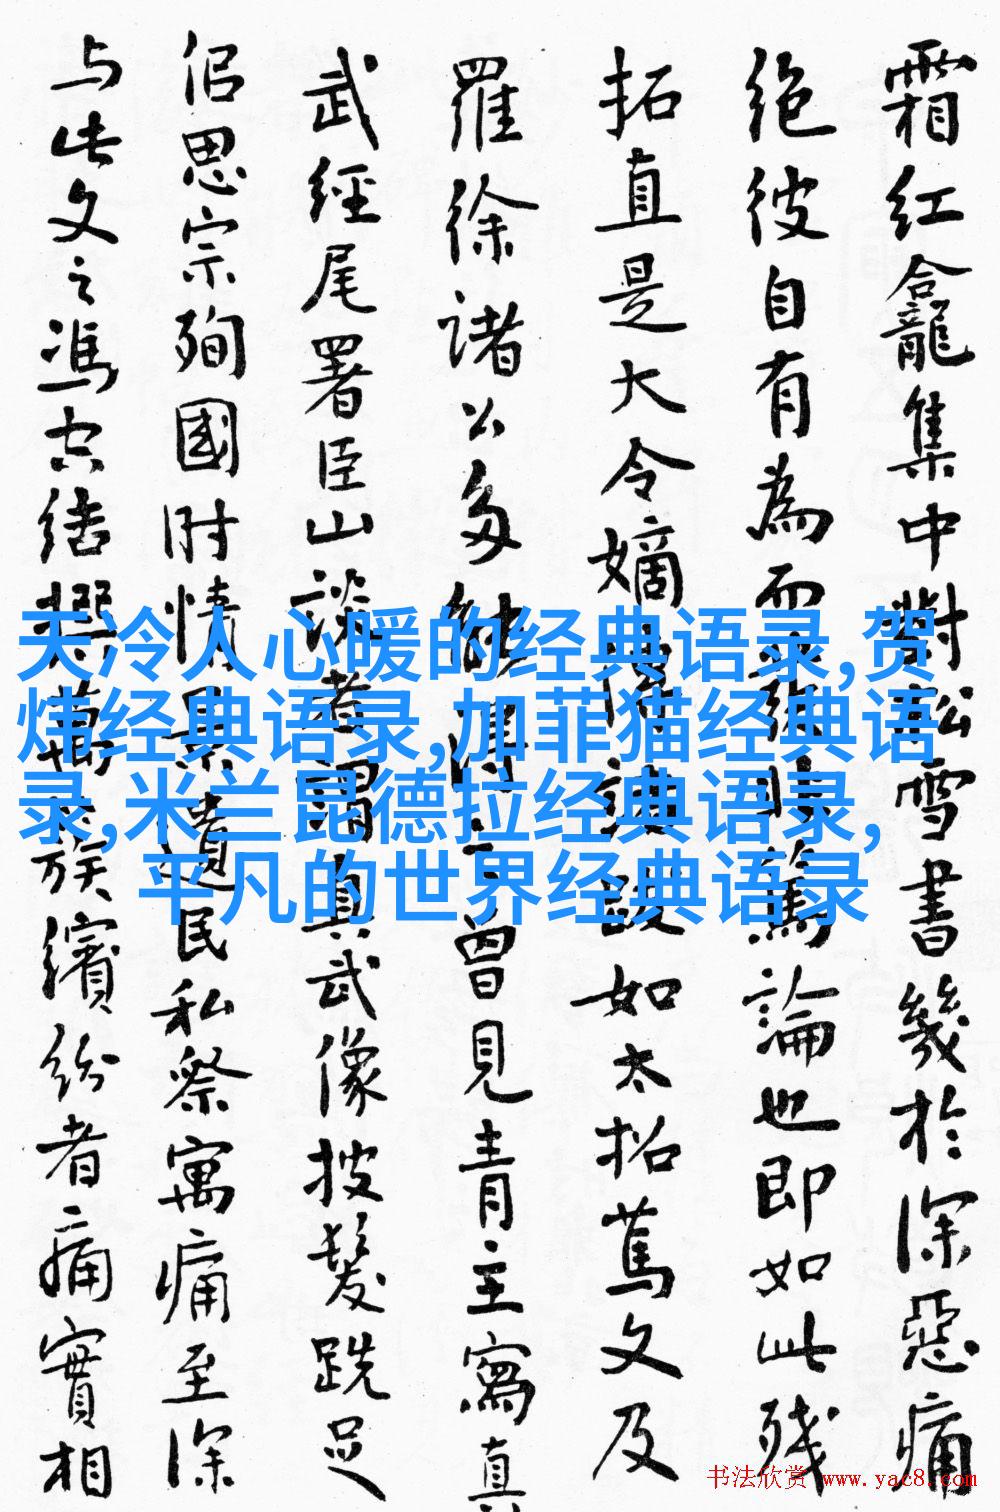 霜红龕集中對雪書幾於深惡痛
絶彼自有為而論也即如此殘
拓直是大令嫡如太拓文及
羅徐諸公多曾見青主寫真
武經尾署臣山談者謂真武像披髮跣足
侣思宗殉國时情景遺民私察寓痛至深
与此文之馮族繽纷者痛實相
天冷人心暖的经典语录,贺
炜经典语录,加菲猫经典语
录,米兰昆德拉经典语录,
平凡的世界经典语录
书法欣赏 www.yac8.com